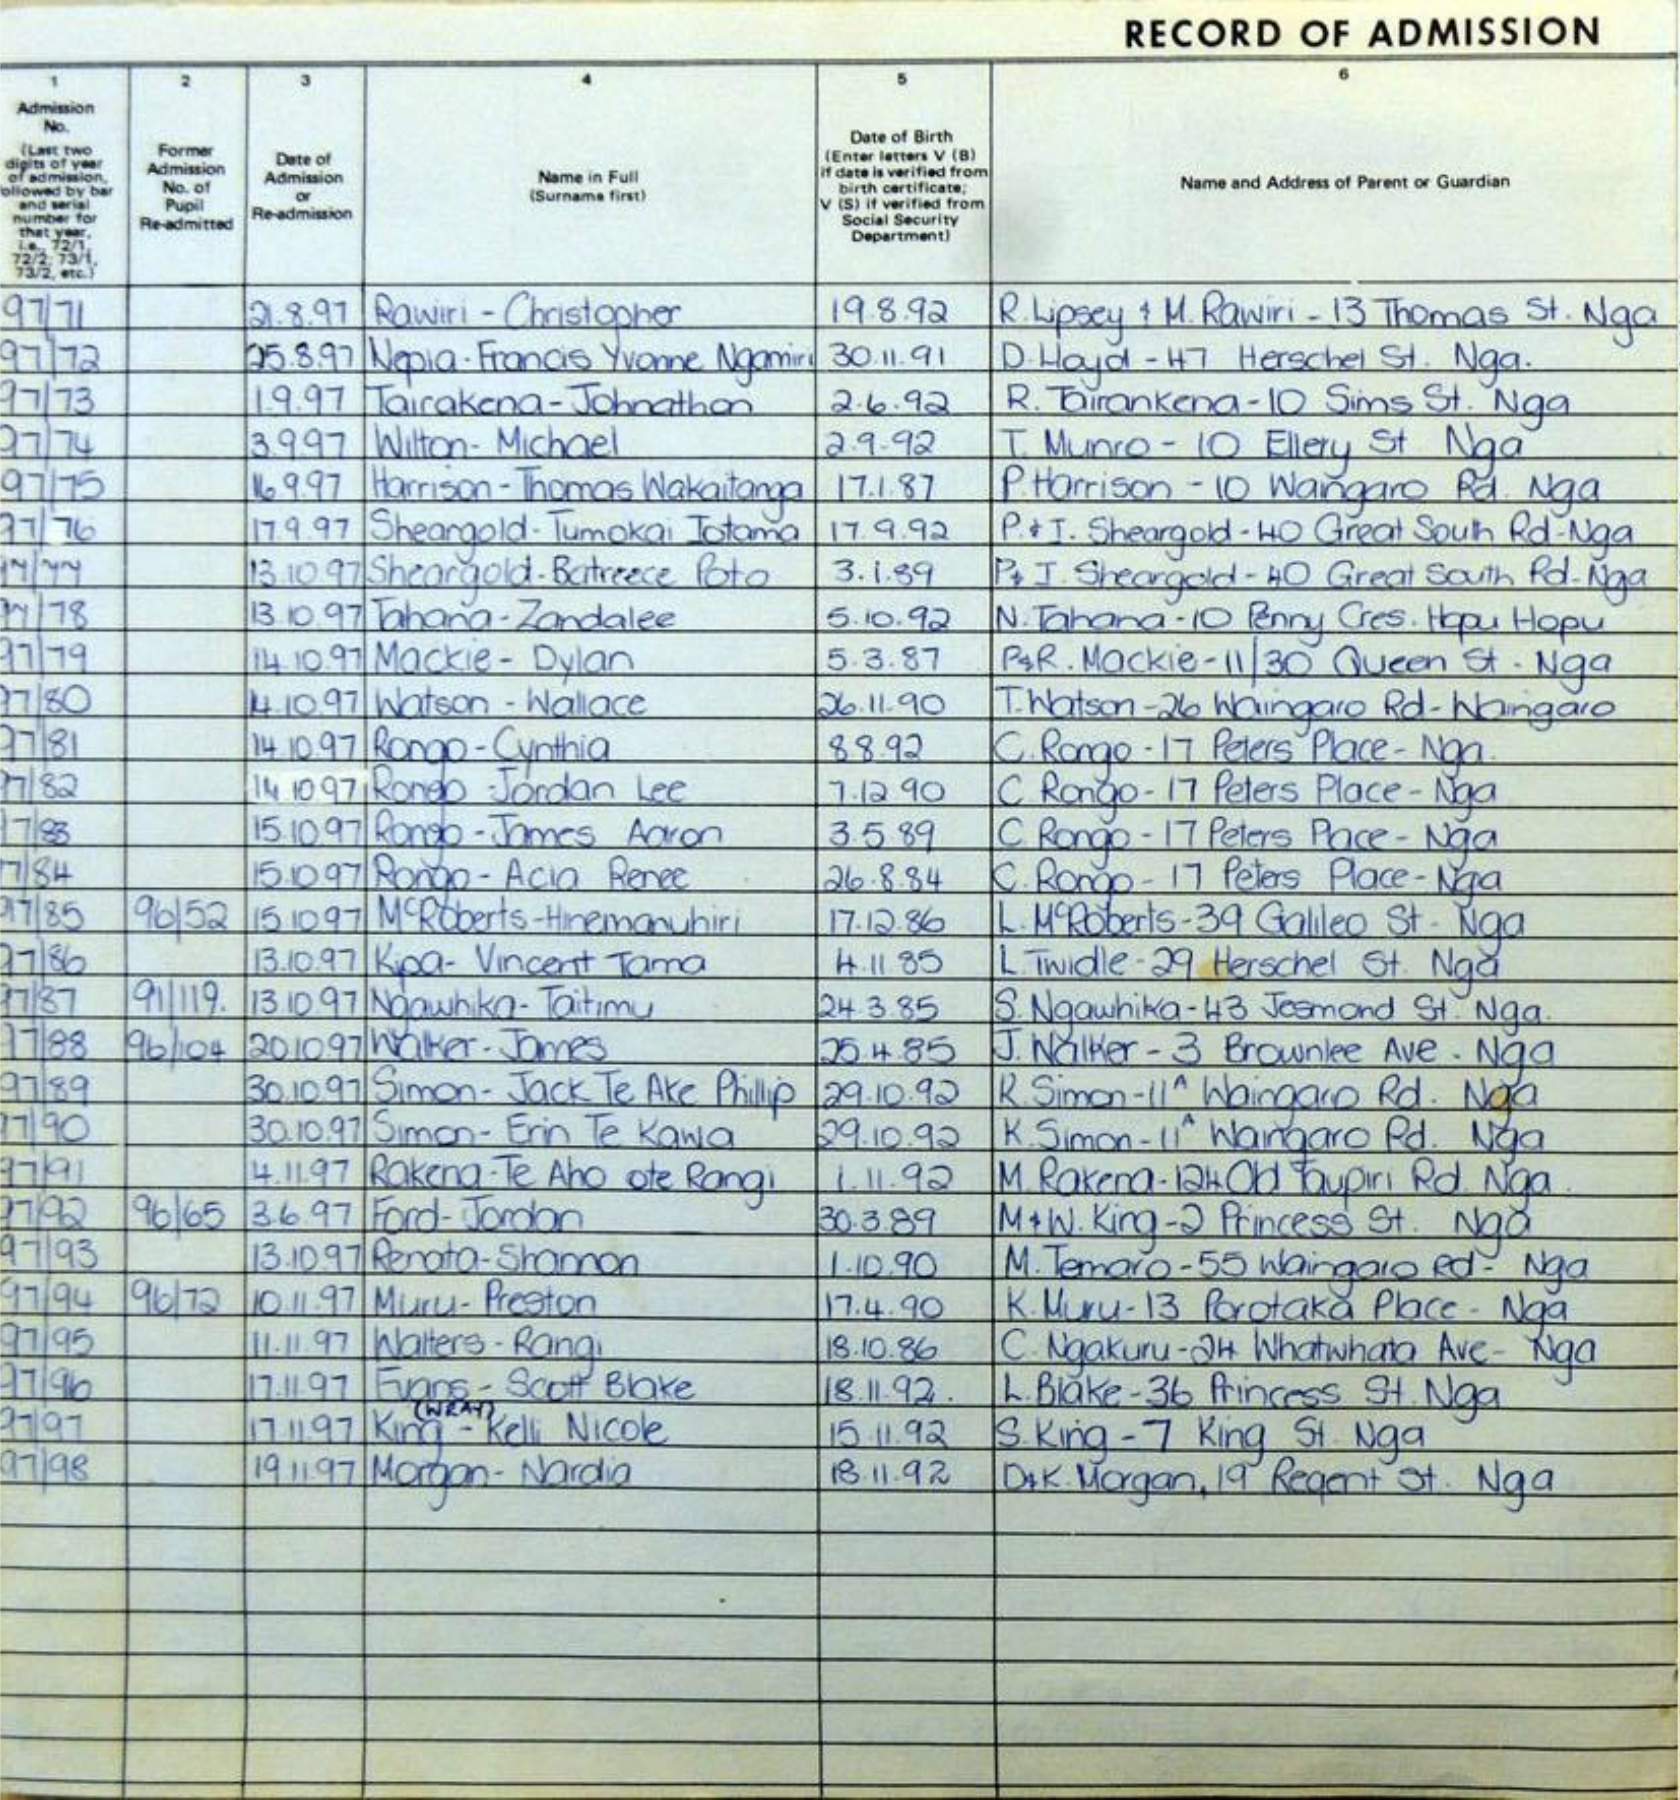 RECORD OF ADMISSION
1 2 3 4 5 6
Admission No. (Last two digits of year of admission, ollowed by bar and serial number for that year, i.e., 72/1, 72/2; 73/1, 73/2, etc.)
Former Admission No. of Pupil Re-admitted
Date of Admission or Re-admission
Name in Full (Surname first)
Date of Birth (Enter letters V (B) if date is verified from birth certificate; V (S) if verified from Social Security Department)
Name and Address of Parent or Guardian
97/71 21.8.97 Rawiri - Christopher 19.8.92 R. Lipsey & M. Rawiri - 13 Thomas St. Nga
97/72 25.8.97 Nepia - Francis Yvonne Ngamiri 30.11.91 D. Lloyd - 47 Herschel St. Nga.
97/73 1.9.97 Tairakena - Johnathon 2.6.92 R. Tairankena - 10 Sims St. Nga
97/74 3.9.97 Wilton - Michael 2.9.92 T. Munro - 10 Ellery St Nga
97/75 16.9.97 Harrison - Thomas Wakaitanga 17.1.87 P. Harrison - 10 Waingaro Rd. Nga
97/76 17.9.97 Sheargold - Tumokai Iotama 17.9.92 P. & I. Sheargold - 40 Great South Rd - Nga
97/77 13.10.97 Sheargold - Batreece Poto 3.1.89 P & I. Sheargold - 40 Great South Rd - Nga
97/78 13.10.97 Tahana - Zandalee 5.10.92 N. Tahana - 10 Penny Cres. Hopu Hopu
97/79 14.10.97 Mackie - Dylan 5.3.87 P & R. Mackie - 11/30 Queen St - Nga
97/80 14.10.97 Watson - Wallace 26.11.90 T. Watson - 26 Waingaro Rd - Waingaro
97/81 14.10.97 Rongo - Cynthia 8.8.92 C. Rongo - 17 Peters Place - Nga.
97/82 14.10.97 Rongo - Jordan Lee 7.12.90 C Rongo - 17 Peters Place - Nga
97/83 15.10.97 Rongo - James Aaron 3.5.89 C Rongo - 17 Peters Place - Nga
97/84 15.10.97 Rongo - Acia Renee 26.8.84 C. Rongo - 17 Peters Place - Nga
97/85 96/52 15.10.97 McRoberts - Hinemanuhiri 17.12.86 L. McRoberts - 39 Galileo St - Nga
97/86 13.10.97 Kipa - Vincent Tama 4.11.85 L. Twidle - 29 Herschel St. Nga
97/87 91/119. 13.10.97 Ngawhika - Taitimu 24.3.85 S. Ngawhika - 43 Jesmond St. Nga.
97/88 96/104 20.10.97 Walker - James 25.4.85 J. Walker - 3 Brownlee Ave - Nga
97/89 30.10.97 Simon - Jack Te Ake Phillip 29.10.92 K. Simon - 11A Waingaro Rd. Nga
97/90 30.10.97 Simon - Erin Te Kawa 29.10.92 K. Simon - 11A Waingaro Rd. Nga
97/91 4.11.97 Rakena - Te Aho ote Rangi 1.11.92 M. Rakena - 124 Old Taupiri Rd. Nga.
97/92 96/65 3.6.97 Ford - Jordan 30.3.89 M & W. King - 2 Princess St. Nga
97/93 13.10.97 Renata - Shannon 1.10.90 M. Temaro - 55 Waingaro Rd - Nga
97/94 96/72 10.11.97 Muru - Preston 17.4.90 K. Muru - 13 Porotaka Place - Nga
97/95 11.11.97 Walters - Rangi 18.10.86 C. Ngakuru - 24 Whatwhata Ave - Nga
97/96 17.11.97 Evans - Scott Blake 18.11.92. L. Blake - 36 Princess St. Nga
(WRAY)
97/97 17.11.97 King - Kelli Nicole 15.11.92 S. King - 7 King St. Nga
97/98 19.11.97 Morgan - Nardia 18.11.92 D & K. Morgan, 19 Regent St. Nga